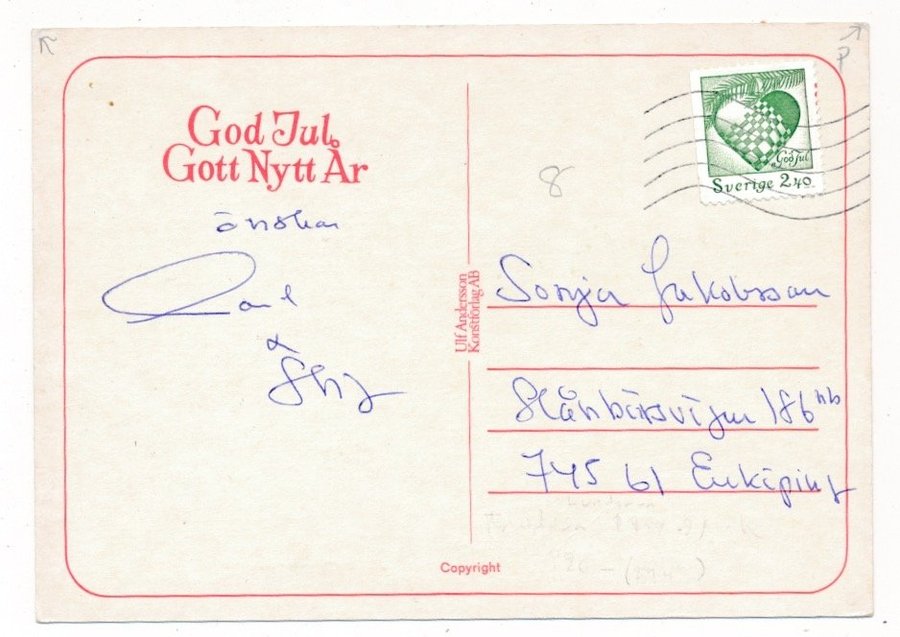 God Jul
Gott Nytt År
önskar
8
P
God Jul
Sverige 2.40
Ulf Andersson
Konstförlag AB
Sonja Jakobsson
Slånbärsvägen 186 nb
745 61 Enköping
Copyright